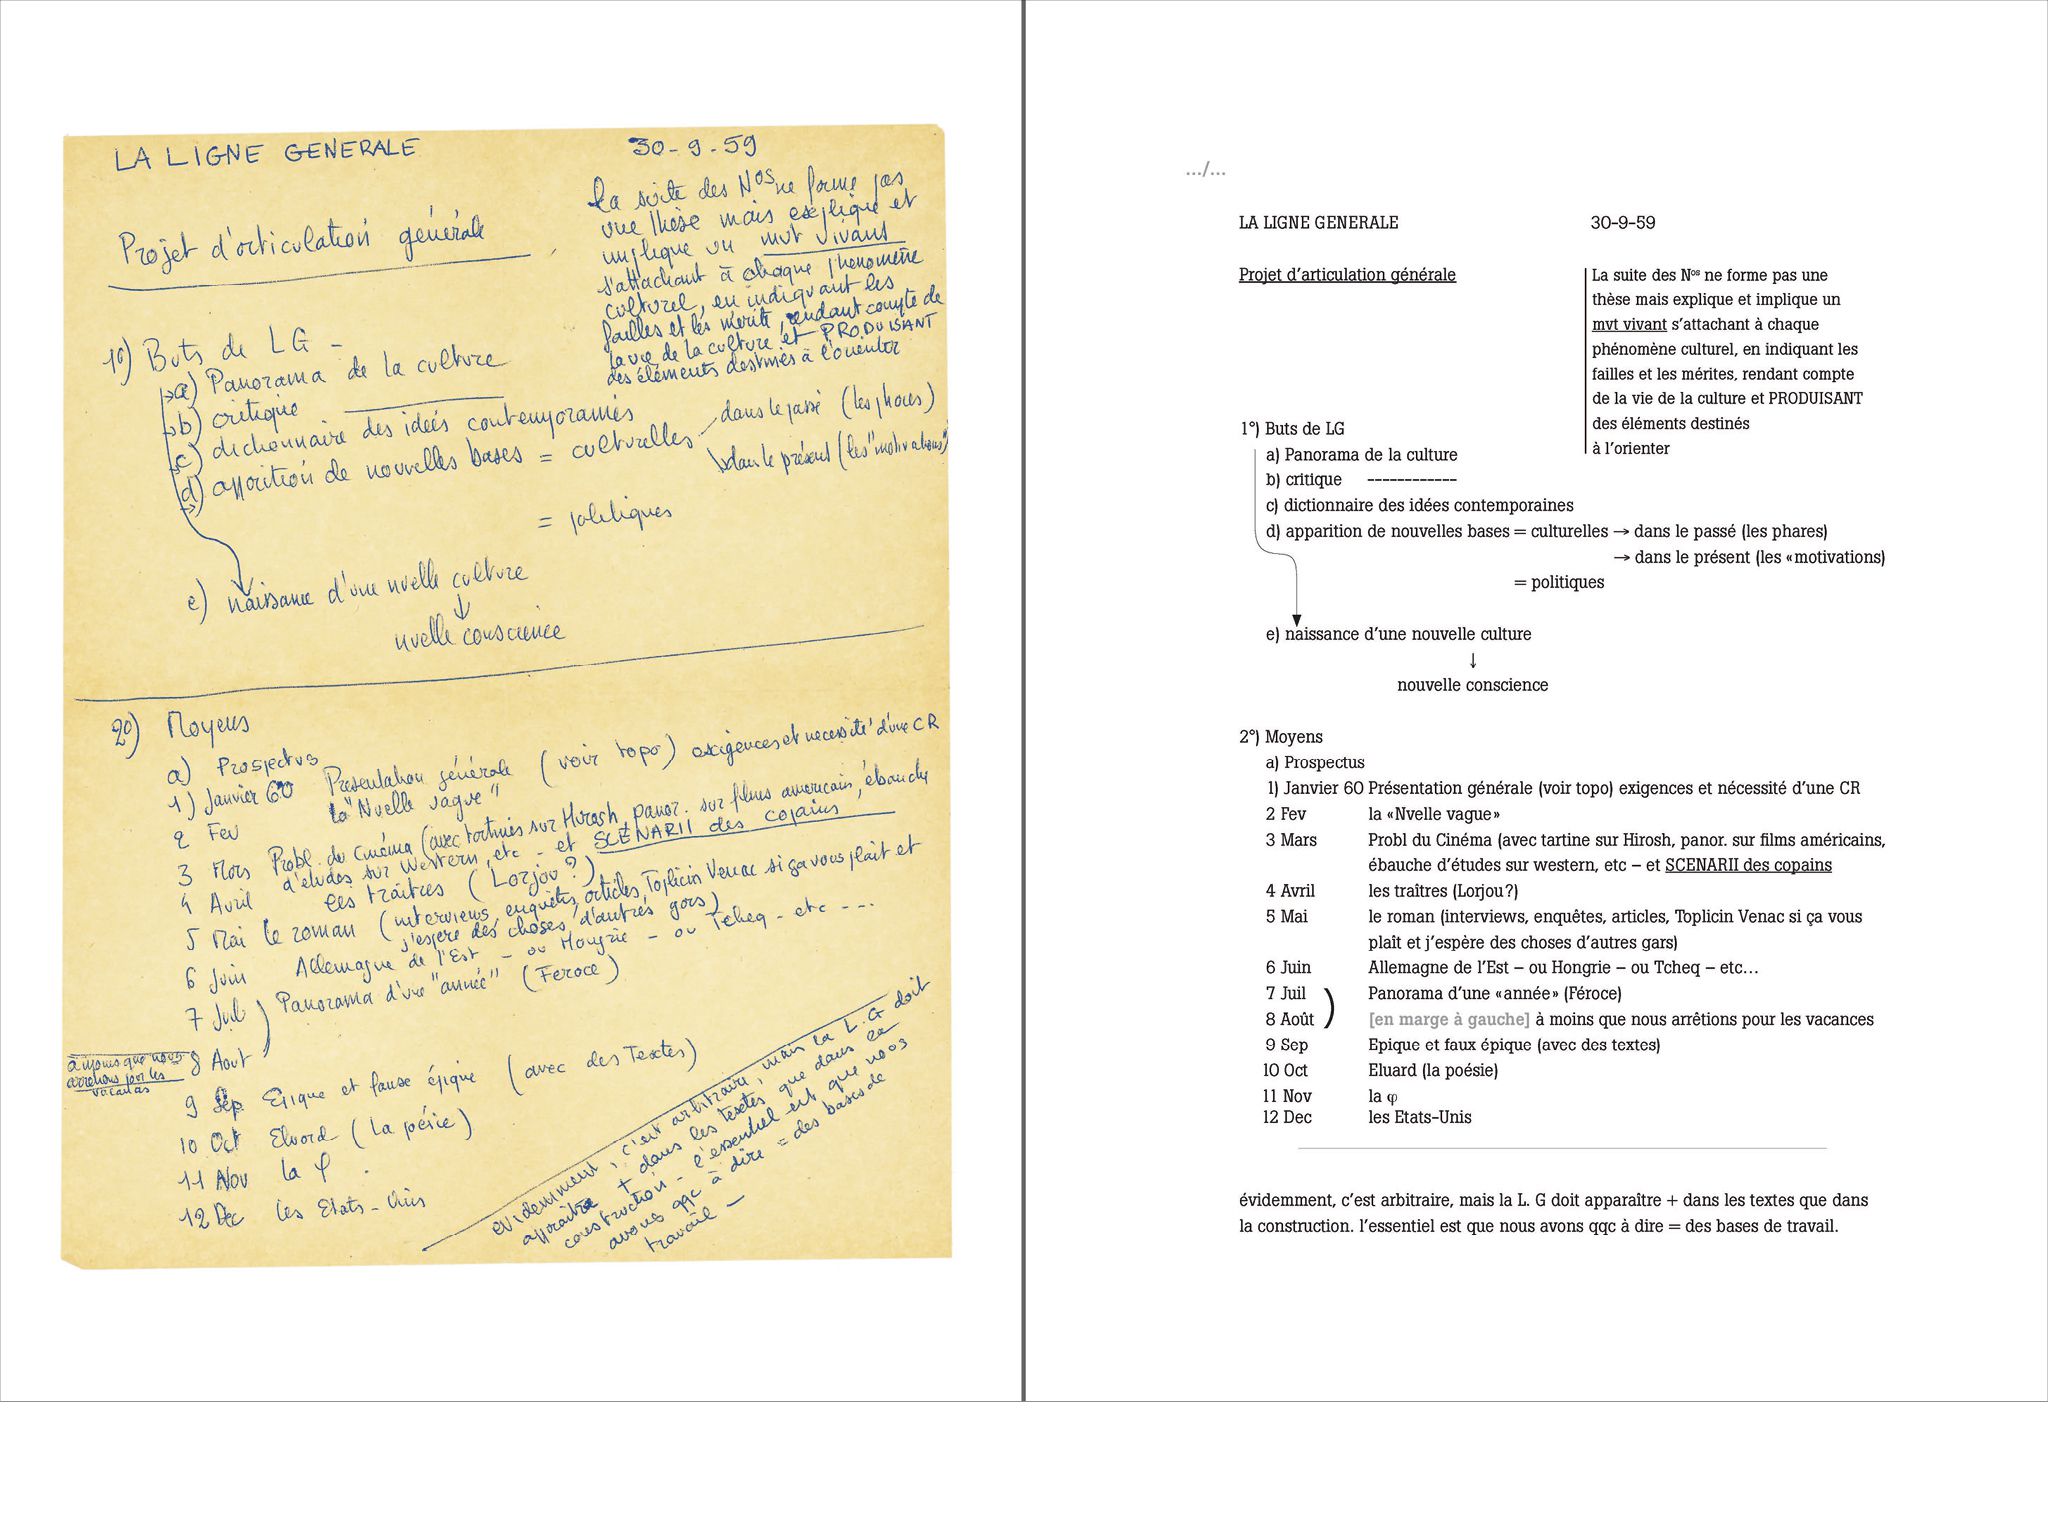 LA LIGNE GENERALE 30-9-59
Projet d'articulation générale
La suite des Nos ne forme pas
une thèse mais explique et
implique un mvt vivant
s'attachant à chaque phénomène
culturel, en indiquant les
failles et les mérite, rendant compte de
la vie de la culture et PRODUISANT
des éléments destinés à l'orienter
1º) Buts de LG -
a) Panorama de la culture
b) critique
c) dictionnaire des idées contemporaines
d) apparition de nouvelles bases = culturelles dans le passé (les phares)
dans le présent (les "motivations")
= politiques
e) naissance d'une nvelle culture
↓
nvelle conscience
2º) Moyens
a) Prospectus
1) Janvier 60 Présentation générale (voir topo) exigences et necessité d'une CR
2 Fev la "Nvelle vague"
3 Mars Probl. du Cinéma (avec tartines sur Hirosh, panor. sur films américains, ébauche
d'études sur Western, etc - et SCENARII des copains
4 Avril les traitres (Lorjou?)
5 Mai le roman (interviews, enquêtes, articles, Toplicin Venac si ça vous plait et
j'espère des choses d'autres gars)
6 Juin Allemagne de l'Est - ou Hongrie - ou Tcheq - etc ---
7 Juil Panorama d'une "année" (Feroce)
8 Aout
à moins que nous
arretions pour les
vacances
9 Sep Epique et fausse épique (avec des Textes)
10 Oct Eluard (la poésie)
11 Nov la φ .
12 Dec les Etats-Unis
evidemment, c'est arbitraire, mais la L.G doit
apparaître + dans les textes que dans la
construction - l'essentiel est que nous
avons qqc à dire = des bases de
travail -
.../...
LA LIGNE GENERALE 30-9-59
Projet d'articulation générale
La suite des Nos ne forme pas une
thèse mais explique et implique un
mvt vivant s'attachant à chaque
phénomène culturel, en indiquant les
failles et les mérites, rendant compte
de la vie de la culture et PRODUISANT
des éléments destinés
à l'orienter
1°) Buts de LG
a) Panorama de la culture
b) critique ------------
c) dictionnaire des idées contemporaines
d) apparition de nouvelles bases = culturelles → dans le passé (les phares)
→ dans le présent (les «motivations)
= politiques
e) naissance d'une nouvelle culture
↓
nouvelle conscience
2°) Moyens
a) Prospectus
1) Janvier 60 Présentation générale (voir topo) exigences et nécessité d'une CR
2 Fev la «Nvelle vague»
3 Mars Probl du Cinéma (avec tartine sur Hirosh, panor. sur films américains,
ébauche d'études sur western, etc – et SCENARII des copains
4 Avril les traîtres (Lorjou?)
5 Mai le roman (interviews, enquêtes, articles, Toplicin Venac si ça vous
plaît et j'espère des choses d'autres gars)
6 Juin Allemagne de l'Est – ou Hongrie – ou Tcheq – etc...
7 Juil Panorama d'une «année» (Féroce)
8 Août [en marge à gauche] à moins que nous arrêtions pour les vacances
9 Sep Epique et faux épique (avec des textes)
10 Oct Eluard (la poésie)
11 Nov la φ
12 Dec les Etats-Unis
évidemment, c'est arbitraire, mais la L. G doit apparaître + dans les textes que dans
la construction. l'essentiel est que nous avons qqc à dire = des bases de travail.